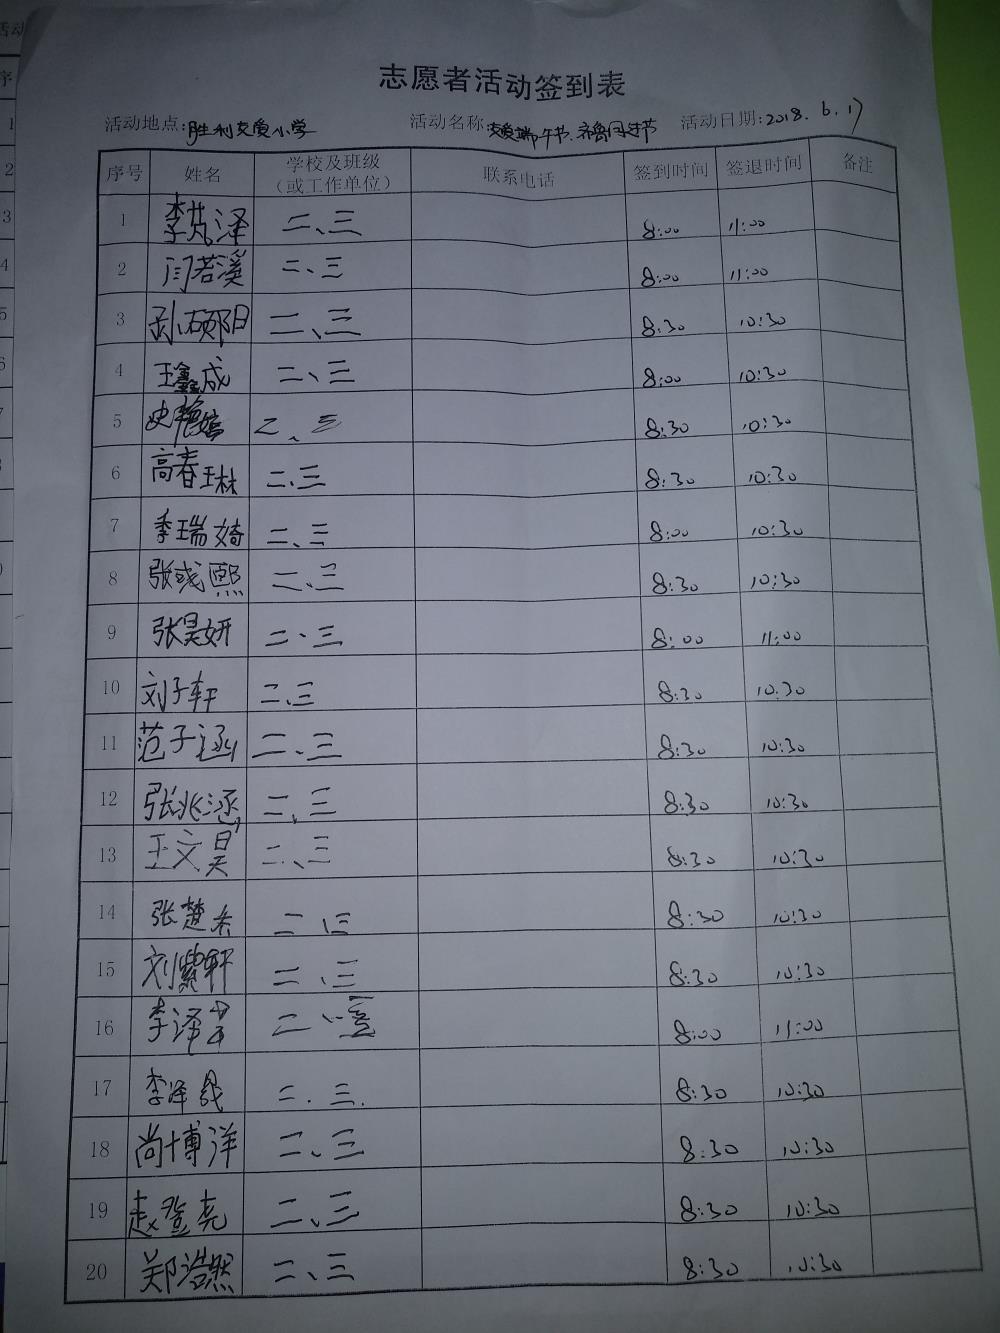 志愿者活动签到表
活动地点:胜利友爱小学 活动名称:友爱端午节.齐鲁同过节 活动日期:2018.6.17
序号 姓名 学校及班级（或工作单位） 联系电话 签到时间 签退时间 备注
1 李芃泽 二、三 8:00 11:00
2 闫若溪 二、三 8:00 11:00
3 孙硕阳 二、三 8:30 10:30
4 王鑫成 二、三 8:00 10:30
5 史艳婷 二、三 8:30 10:30
6 高春琳 二、三 8:30 10:30
7 季瑞婍 二、三 8:00 10:30
8 张彧熙 二、三 8:30 10:30
9 张昊妍 二、三 8:00 11:00
10 刘子轩 二、三 8:30 10:30
11 范子涵 二、三 8:30 10:30
12 张兆涵 二、三 8:30 10:30
13 王文昊 二、三 8:30 10:30
14 张楚 二 三 8:30 10:30
15 刘紫轩 二、三 8:30 10:30
16 李泽 二、三 8:00 11:00
17 李泽晟 二.三. 8:30 10:30
18 尚博洋 二、三 8:30 10:30
19 赵登亮 二、三 8:30 10:30
20 郑浩然 二、三 8:30 10:30